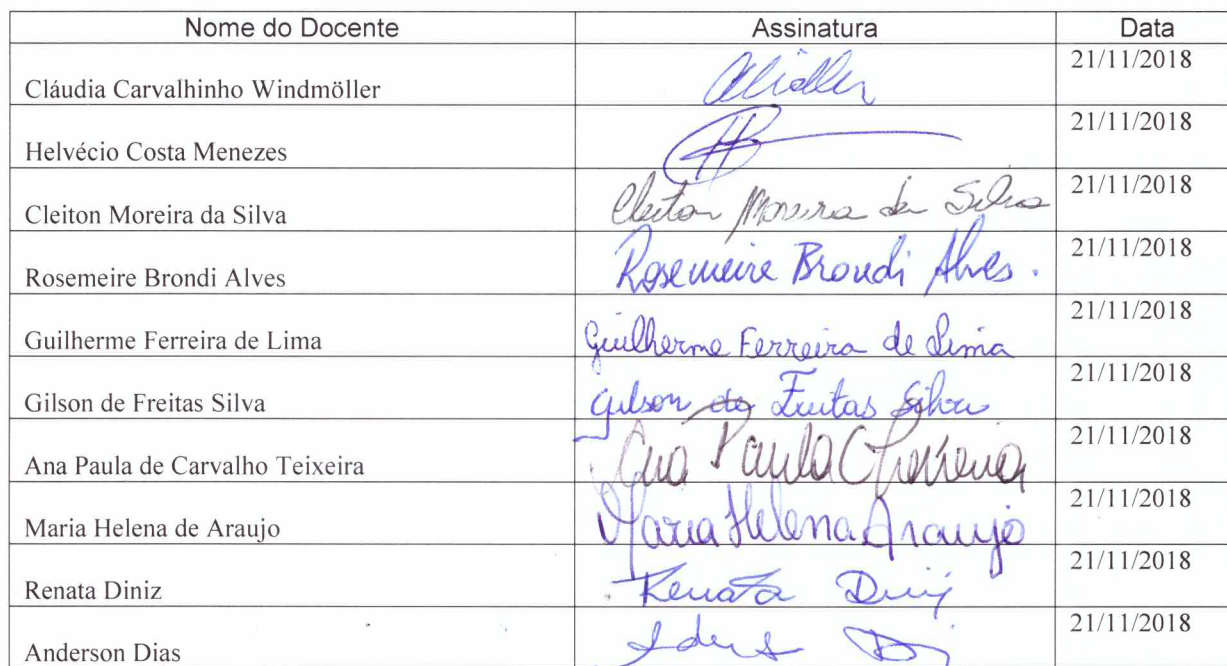 Nome do Docente Assinatura Data
Cláudia Carvalhinho Windmöller 21/11/2018
Helvécio Costa Menezes 21/11/2018
Cleiton Moreira da Silva Cleiton Moreira da Silva 21/11/2018
Rosemeire Brondi Alves Rosemeire Brondi Alves. 21/11/2018
Guilherme Ferreira de Lima Guilherme Ferreira de Lima 21/11/2018
Gilson de Freitas Silva Gilson de Freitas Silva 21/11/2018
Ana Paula de Carvalho Teixeira Ana Paula C Teixeira 21/11/2018
Maria Helena de Araujo Maria Helena Araujo 21/11/2018
Renata Diniz Renata Diniz 21/11/2018
Anderson Dias 21/11/2018